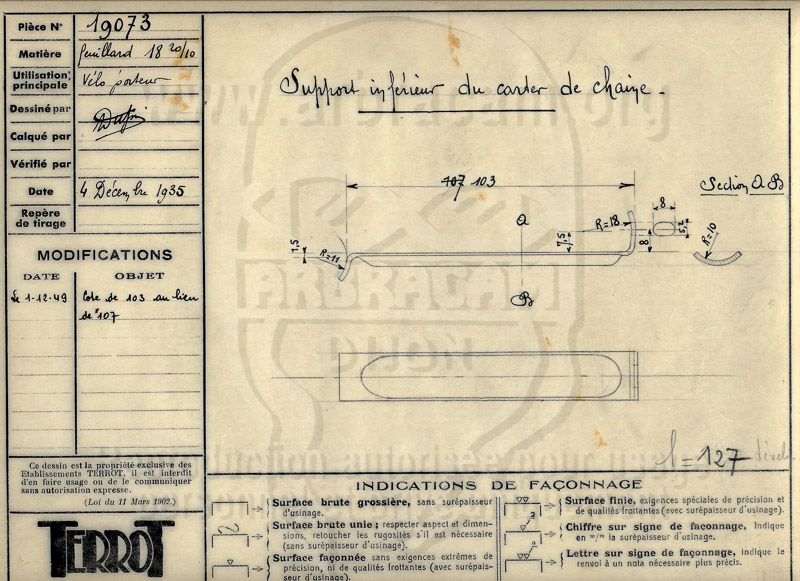 Pièce N° 19073
Matière feuillard 18 20/10
Utilisation principale Vélo porteur
Dessiné par
Calqué par
Vérifié par
Date 4 Décembre 1935
Repère de tirage
MODIFICATIONS
DATE OBJET
Le 1-12-49 Cote de 103 au lieu
de 107
Ce dessin est la propriété exclusive des
Etablissements TERROT, il est interdit
d'en faire usage ou de le communiquer
sans autorisation expresse.
(Loi du 11 Mars 1902.)
TERROT
Support inférieur du carter de chaîne.
107 103
Section A B
A
R=18
8
5,2
7,5
8
R=10
1,5
R=11
B
l=127
INDICATIONS DE FAÇONNAGE
Surface brute grossière, sans surépaisseur
d'usinage.
Surface brute unie; respecter aspect et dimen-
sions, retoucher les rugosités s'il est nécessaire
(sans surépaisseur d'usinage).
Surface façonnée sans exigences extrêmes de
précision, ni de qualités frottantes (avec surépais-
seur d'usinage).
Surface finie, exigences spéciales de précision et
de qualités frottantes (avec surépaisseur d'usinage).
Chiffre sur signe de façonnage, indique
en m/m la surépaisseur d'usinage.
Lettre sur signe de façonnage, indique le
renvoi à un nota nécessaire plus précis.
ARBRACAM
DIJON